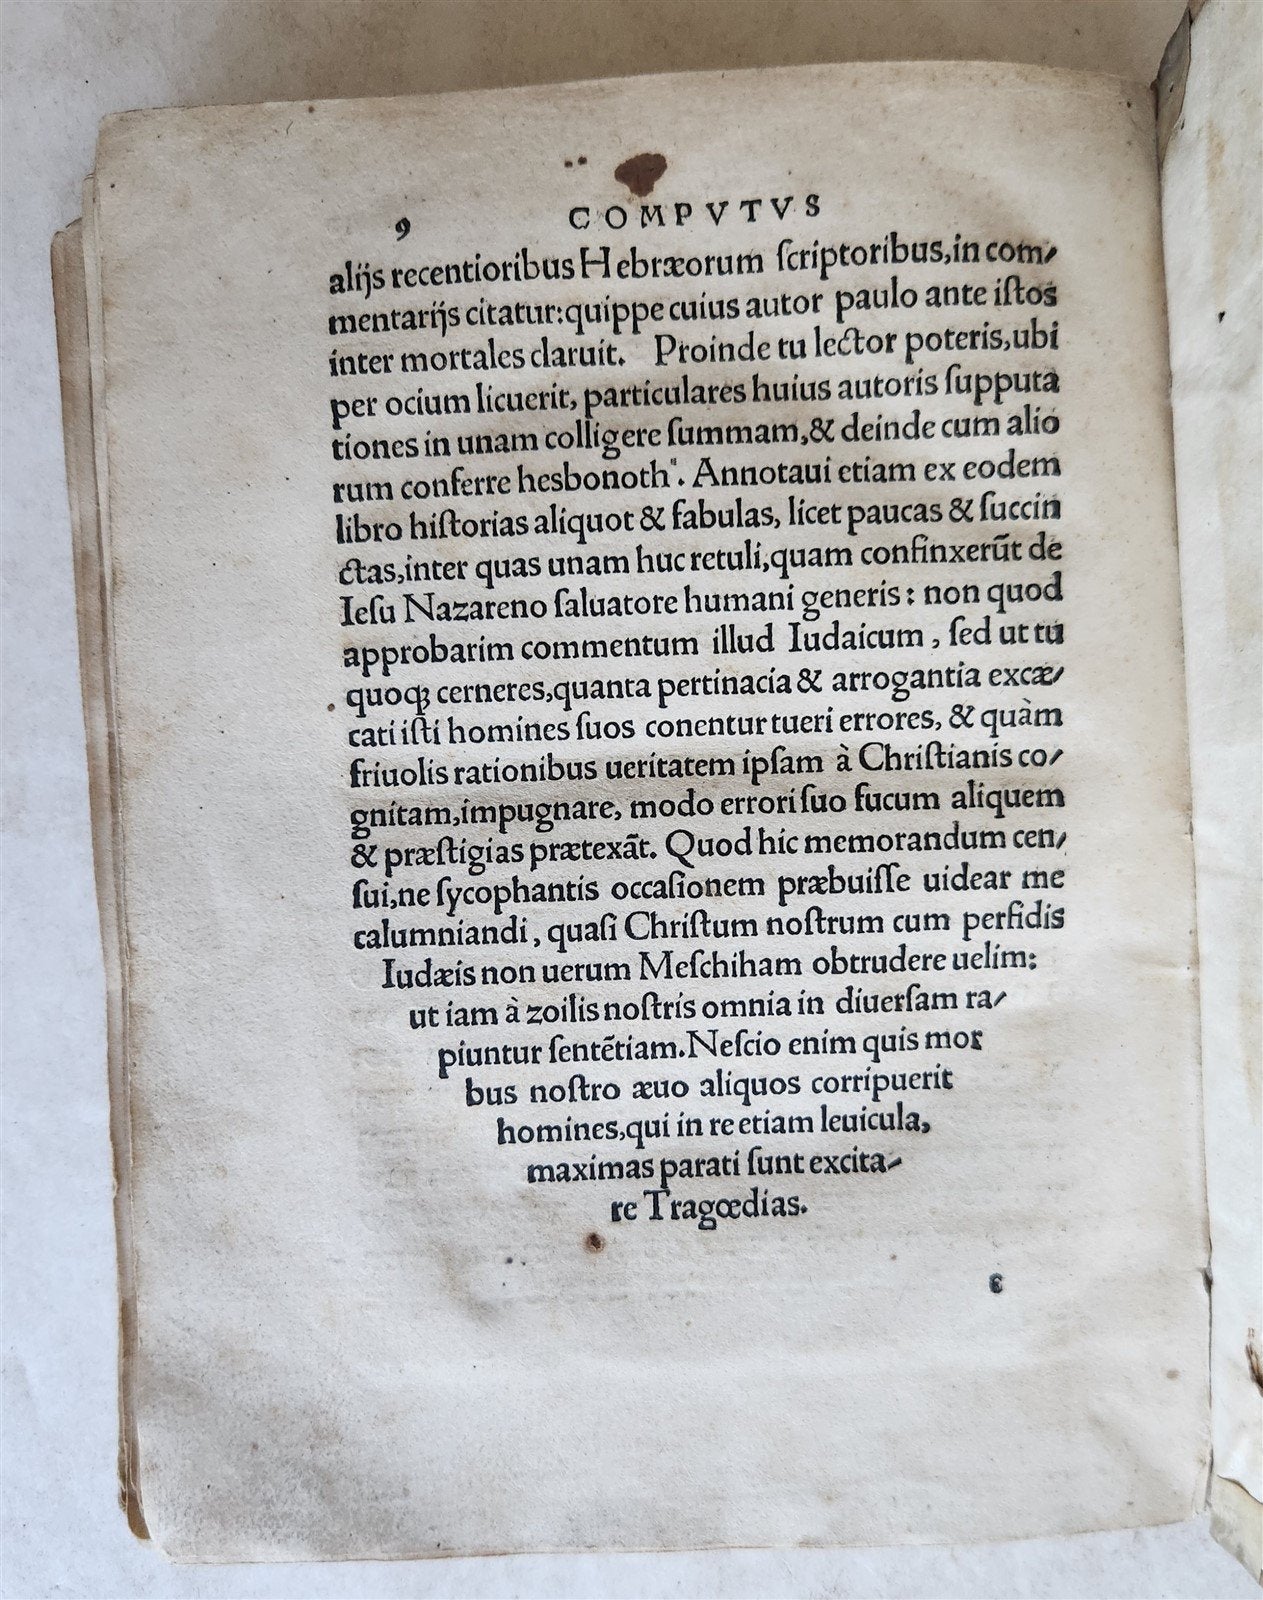 9 COMPVTVS
alijs recentioribus Hebræorum ſcriptoribus,in com⸗
mentarijs citatur:quippe cuius autor paulo ante iſtos
inter mortales claruit. Proinde tu lector poteris,ubi
per ocium licuerit, particulares huius autoris ſupputa
tiones in unam colligere ſummam,& deinde cum alio
rum conferre hesbonoth". Annotaui etiam ex eodem
libro hiſtorias aliquot & fabulas, licet paucas & ſuccin
ctas,inter quas unam huc retuli,quam confinxerũt de
Ieſu Nazareno ſaluatore humani generis: non quod
approbarim commentum illud Iudaicum, ſed ut tu
quoqꝫ cerneres,quanta pertinacia & arrogantia excæ⸗
cati iſti homines ſuos conentur tueri errores, & quàm
friuolis rationibus ueritatem ipſam à Chriſtianis co⸗
gnitam,impugnare, modo errori ſuo fucum aliquem
& præſtigias prætexãt. Quod hic memorandum cen⸗
ſui,ne ſycophantis occaſionem præbuiſſe uidear me
calumniandi, quaſi Chriſtum noſtrum cum perfidis
Iudæis non uerum Meſchiham obtrudere uelim:
ut iam à zoilis noſtris omnia in diuerſam ra⸗
piuntur ſentẽtiam.Neſcio enim quis mor
bus noſtro æuo aliquos corripuerit
homines,qui in re etiam leuicula,
maximas parati ſunt excita⸗
re Tragœdias.